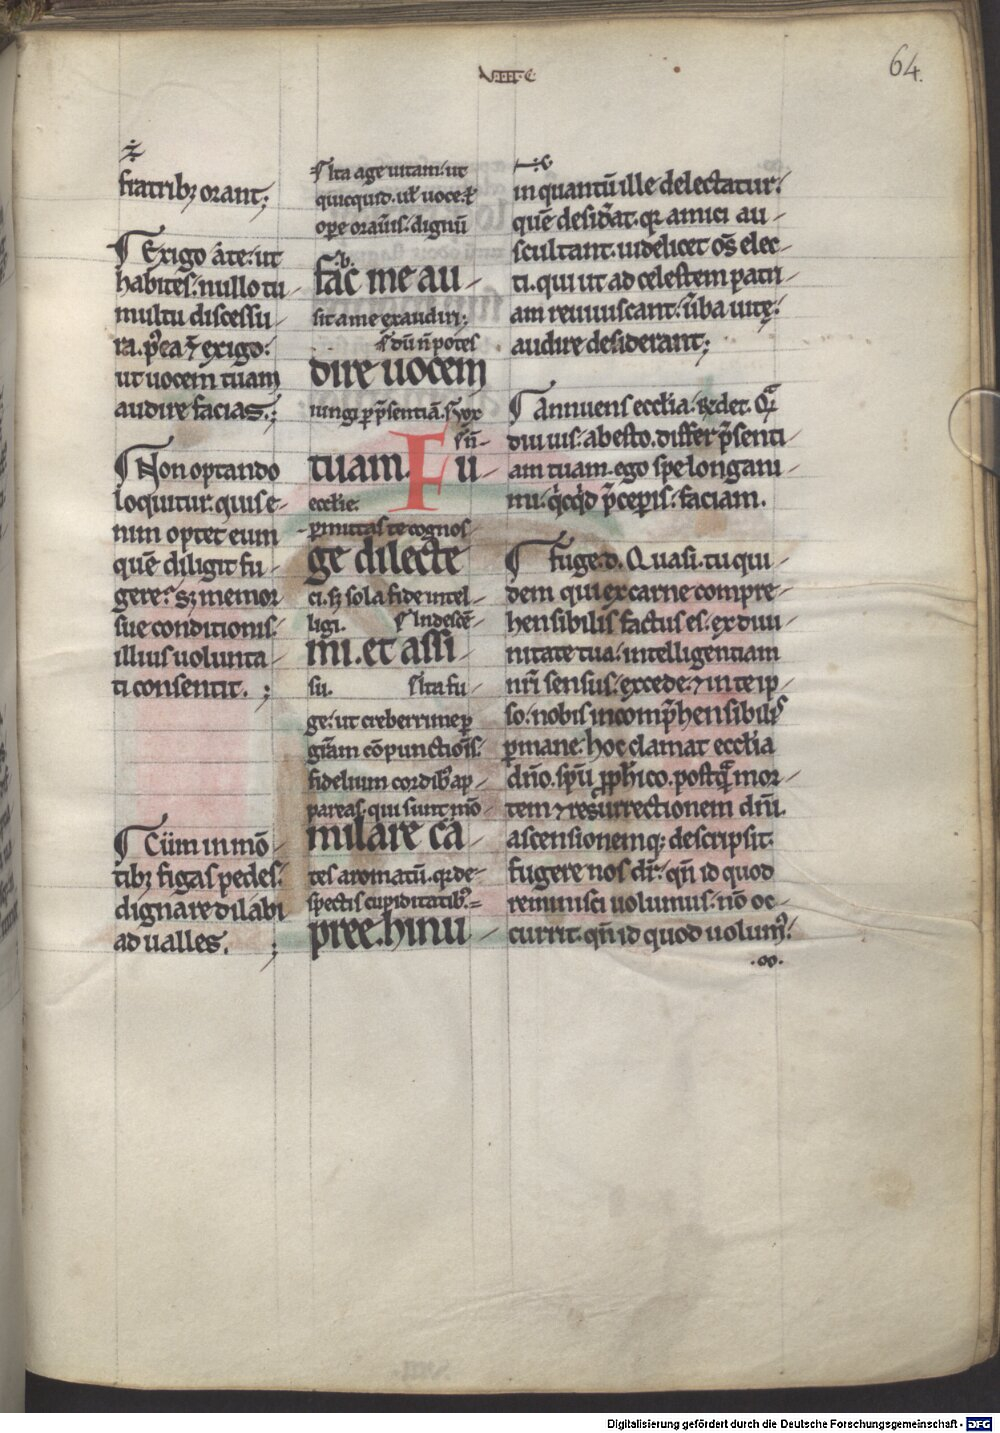 64.
·VIIII·C
fratribꝫ orant;
¶ Exigo a te: ut
habites: nullo tu-
multu discessu-
ra. p̄ea ⁊ exigo:
ut uocem tuam
audire facias.;
¶ Non optando
loquitur: quis e-
nim optet eum
quē diligit fu-
gere? sꝫ memor
sue conditionis:
illius uolunta-
ti consentit. ;
¶ Cūm in mō-
tibꝫ figas pedes:
dignare dilabi
ad ualles. ;
¶ Ita age uitam: ut
quicquid. ul' uoce. ul'
ope oraūis: dignū
fac me au-
sit a me exaudiri;
¶ dū n̄ potes
dire uocem
iungi p p̄sentiā.
tuam. Fu-
ecclie.
-pmittas te cognos-
ge dilecte
ci. sꝫ sola fide intel-
ligi. ¶ In descē-
mi. et assi-
su. ¶ Ita fu-
ge: ut creberrime p
grām cōpunctiōis:
fidelium cordibꝰ ap-
pareas. qui sunt mō-
milare ca-
tes aromatū. qr de-
spectis cupiditatibꝰ.=
pree. hinu-
in quantū ille delectatur:
quē desid'at. qr amici au-
scultant. uidelicet oīs elec-
ti. qui ut ad celestem patri-
am reuiuiscant: ūba uitę:
audire desiderant;
¶ Annuens ecclia. rn̄det. Qā
diu uis: abesto. differ p̄senti-
am tuam. ego spe longani-
mi. qͥcqͥd p̄ceperis: faciam.
¶ Fuge. d. Quasi. tu qui-
dem qui ex carne compre-
hensibilis factus es: ex diui-
nitate tua: intelligentiam
nr̄i sensus: excede: ⁊ in te ip-
so: nobis incomp̄hensibilis
pmane: hoc clamat ecclia
dn̄o. sp̄u pph'ico. postqā mor-
tem ⁊ resurrectionem dn̄i.
ascensionemqꝫ descripsit.
fugere nos dr̄: qn̄ id quod
reminisci uolumus: nō oc-
currit. qn̄ id quod uolumꝰ:
Digitalisierung gefördert durch die Deutsche Forschungsgemeinschaft - DFG